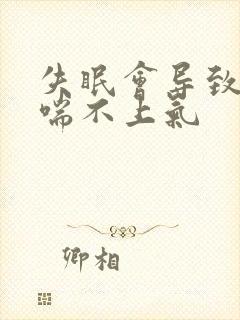 失眠會导致
喘不上氣
卿相